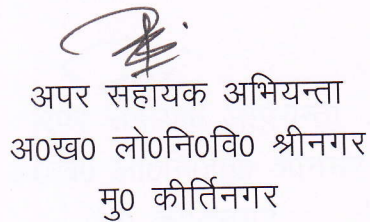 अपर सहायक अभियन्ता
अ0ख0 लो0नि0वि0 श्रीनगर
मु0 कीर्तिनगर